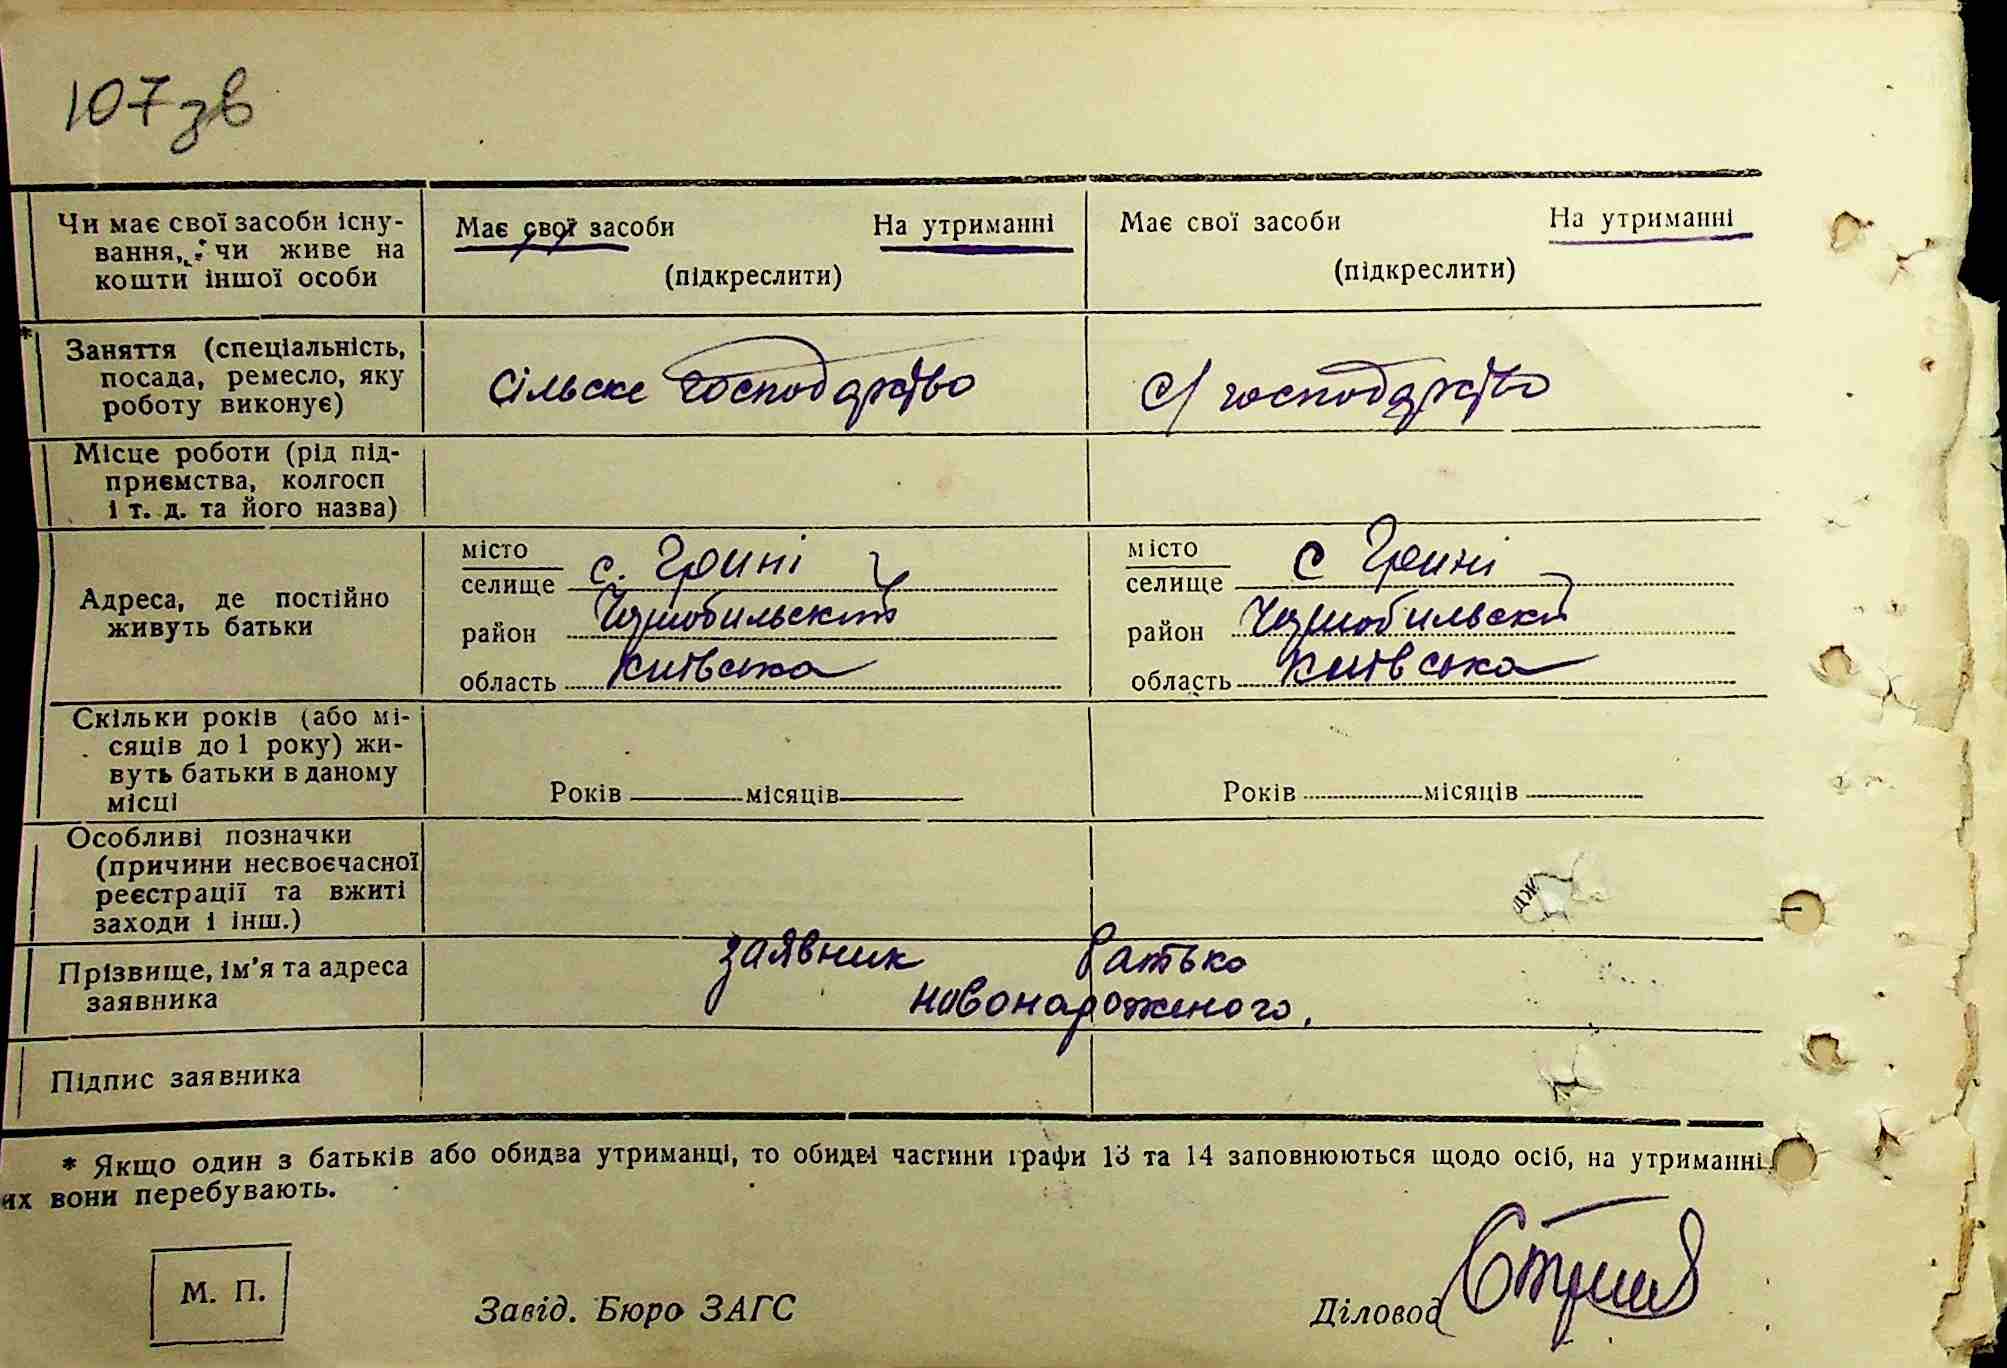 107зв
Чи має свої засоби існу- Має свої засоби На утриманні Має свої засоби На утриманні
вання, чи живе на
кошти іншої особи (підкреслити) (підкреслити)
* Заняття (спеціальність,
посада, ремесло, яку Сільске господарство С/господарство
роботу виконує)
Місце роботи (рід під-
приємства, колгосп
і т. д. та його назва)
місто с. Грині місто с Грині
Адреса, де постійно селище селище
живуть батьки район Чернобильский район Чернобильски
область Київська область Київська
Скільки років (або мі-
сяців до 1 року) жи-
вуть батьки в даному Років місяців Років місяців
місці
Особливі позначки
(причини несвоєчасної
реєстрації та вжиті дж
заходи і інш.)
Прізвище, ім'я та адреса заявник батько
заявника новонароженого.
Підпис заявника
* Якщо один з батьків або обидва утриманці, то обидві частини графи 13 та 14 заповнюються щодо осіб, на утриманні
их вони перебувають.
М. П.
Завід. Бюро ЗАГС Діловод